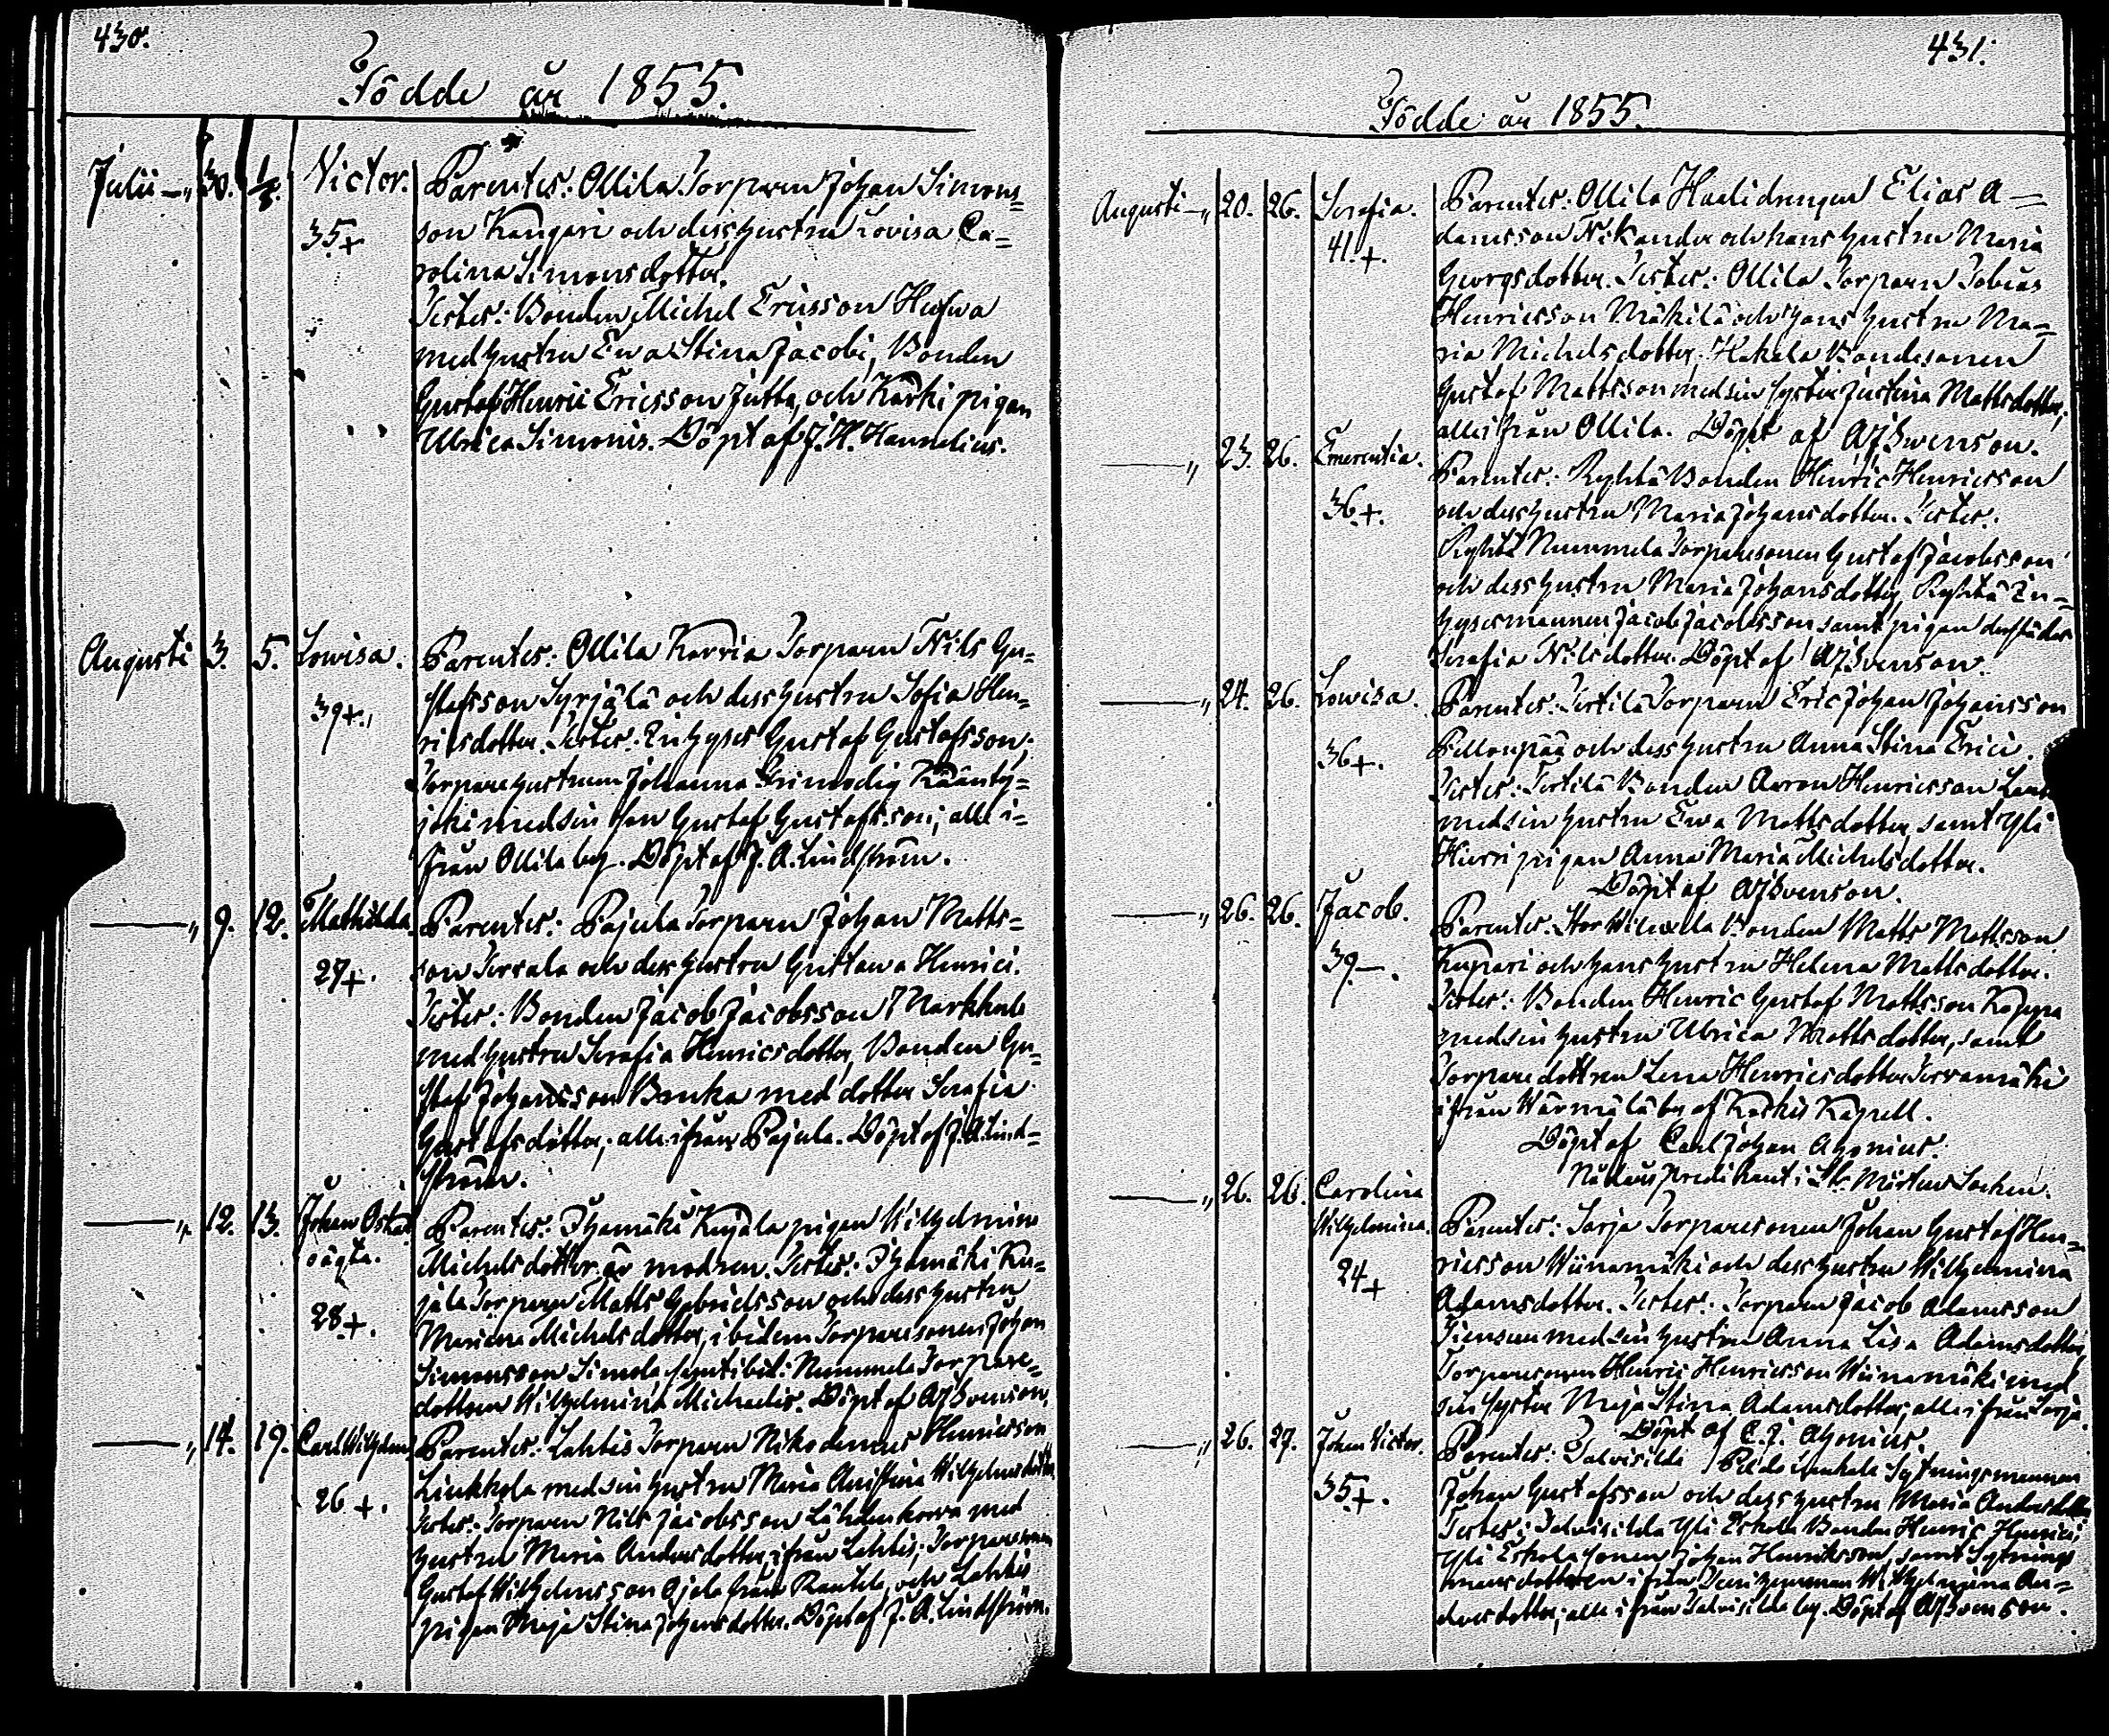 430.
Födde år 1855.
Julii — „ 30. 1/8. Victor. Parentes: Ollila Torparen Johan Simons=
35+ son Kangari och dess hustru Lovisa Ca=
rolina Simonsdotter.
Testes: Bonden Michel Ericsson
med hustru Ewa Stina Jacobi, Bonden
Gustaf Henric Ericsson Jutta, och Kärki pigan
Ulrica Simonis. Döpt af J. H. Hannelius.
Augusti 3. 5. Lowisa. Parentes: Ollila Karria Torparen Nils Gu=
39+. stafsson Syrjälä och dess hustru Sofia Hen=
ricsdotter. Testes: Inhyses Gustaf Gustafsson;
Torpare hustrun Johanna Frimodig Käänty=
joki med sin son Gustaf Gustafsson; alle i=
från Ollila by. Döpt af J. A. Lindström.
— „ 9. 12. Mathilda. Parentes: Pajula Torparen Johan Matts=
27+. son och dess hustru Gustawa Henrici.
Testes: Bonden Jacob Jacobsson Markkula
med hustru Serafia Henricsdotter, Bonden Gu=
staf Johansson med dotter Serafia
Gustafsdotter; alle ifrån Pajula. Döpt af J. A. Lind=
ström.
— „ 12. 13. Johan Oskar Parentes: Ihamäki Kujala pigan Wilhelmina
oägta. Michelsdotter är modren. Testes: Ihamäki Ku=
28+. jala Torparen Matts Gabrielsson och dess hustru
Mariana Michelsdotter, ibidem Torparesonen Johan
Simonsson Simola samt ibid: Nummela Torpare=
dottren Wilhelmina Michaelis. Döpt af Aj Svenson.
— „ 14. 19. Carl Wilhelm Parentes: Lahtis Torparen Nikodemus Henricsson
26+. Liukkola med sin hustru Maria Christina Wilhelmsdotter
Testes: Torparen Nils Jacobsson Lähdenkorva med
hustru Maria Andersdotter, ifrån Lahtis; Torparesonen
Gustaf Wilhelmsson Ojala från Rautela, och Lahtis
pigan Maja Stina Johansdotter. Döpt af J. A. Lindström.
431.
Födde år 1855.
Augusti — „ 20. 26. Serafia. Parentes: Ollila Haali drengen Elias A=
41.+. damsson Nikander och hans hustru Maria
Georgsdotter. Testes: Ollila Torparen Tobias
Henricsson Mäkilä och hans hustru Ma=
ria Michelsdotter, Hakala Bondesonen
Gustaf Mattsson med sin syster Justina Mattsdotter;
alle ifrån Ollila. Döpt af Aj Svenson.
— „ 23. 26. Emerentia. Parentes: Ryhtä Bonden Henric Henricsson
36.+. och dess hustru Maria Johansdotter. Testes:
Ryhtä Nummela Torparesonen Gustaf Jacobsson
och dess hustru Maria Johansdotter, Ryhtä In=
hysesmannen Jacob Jacobsson samt pigan dersädes
Serafia Nilsdotter. Döpt af Aj Svenson.
— „ 24. 26. Lowisa. Parentes: Terttilä Torparen Eric Johan Johansson
36+. Pellonpää och dess hustru Anna Stina Erici.
Testes: Terttilä Bonden Aaron Henricsson
med sin hustru Ewa Mattsdotter, samt Yli
Hierri pigan Anna Maria Michelsdotter.
Döpt af Aj Svenson.
— „ 26. 26. Jacob. Parentes: Stor Wilusela Bonden Matts Mattsson
39.—. Kupari och hans hustru Helena Mattsdotter.
Testes: Bonden Henric Gustaf Mattsson
med sin hustru Ulrica Mattsdotter, samt
Torpare dottren Lena Henricsdotter
ifrån Wärmälä by af Koskis Kapell.
Döpt af Carl Johan Ahonius.
Nådårspredikant i St. Mårtens Socken.
— „ 26. 26. Carolina
Wilhelmina. Parentes: Sorja Torparesonen Johan Gustaf Hen=
24+ ricsson Wiinamäki och dess hustru Wilhelmina
Adamsdotter. Testes: Torparen Jacob Adamsson
med sin hustru Anna Lisa Adamsdotter,
Torparesonen Henric Henricsson Wiinamäki med
sin syster Maja Stina Adamsdotter; alle ifrån Sorja.
Döpt af C. J. Ahonius.
— „ 26. 27. Johan Victor. Parentes: Talvisilda Sytningsmannen
35+. Johan Gustafsson och dess hustru Maria Andersdotter
Testes: Talvisilda Yli Eskola Bonden Henric Henrici,
Yli Eskola sonen Johan Henriksson, samt Sytnings
mansdottren ifrån Wilhelmina An=
dersdotter; alle ifrån Talvisilda by. Döpt af Aj Svenson.